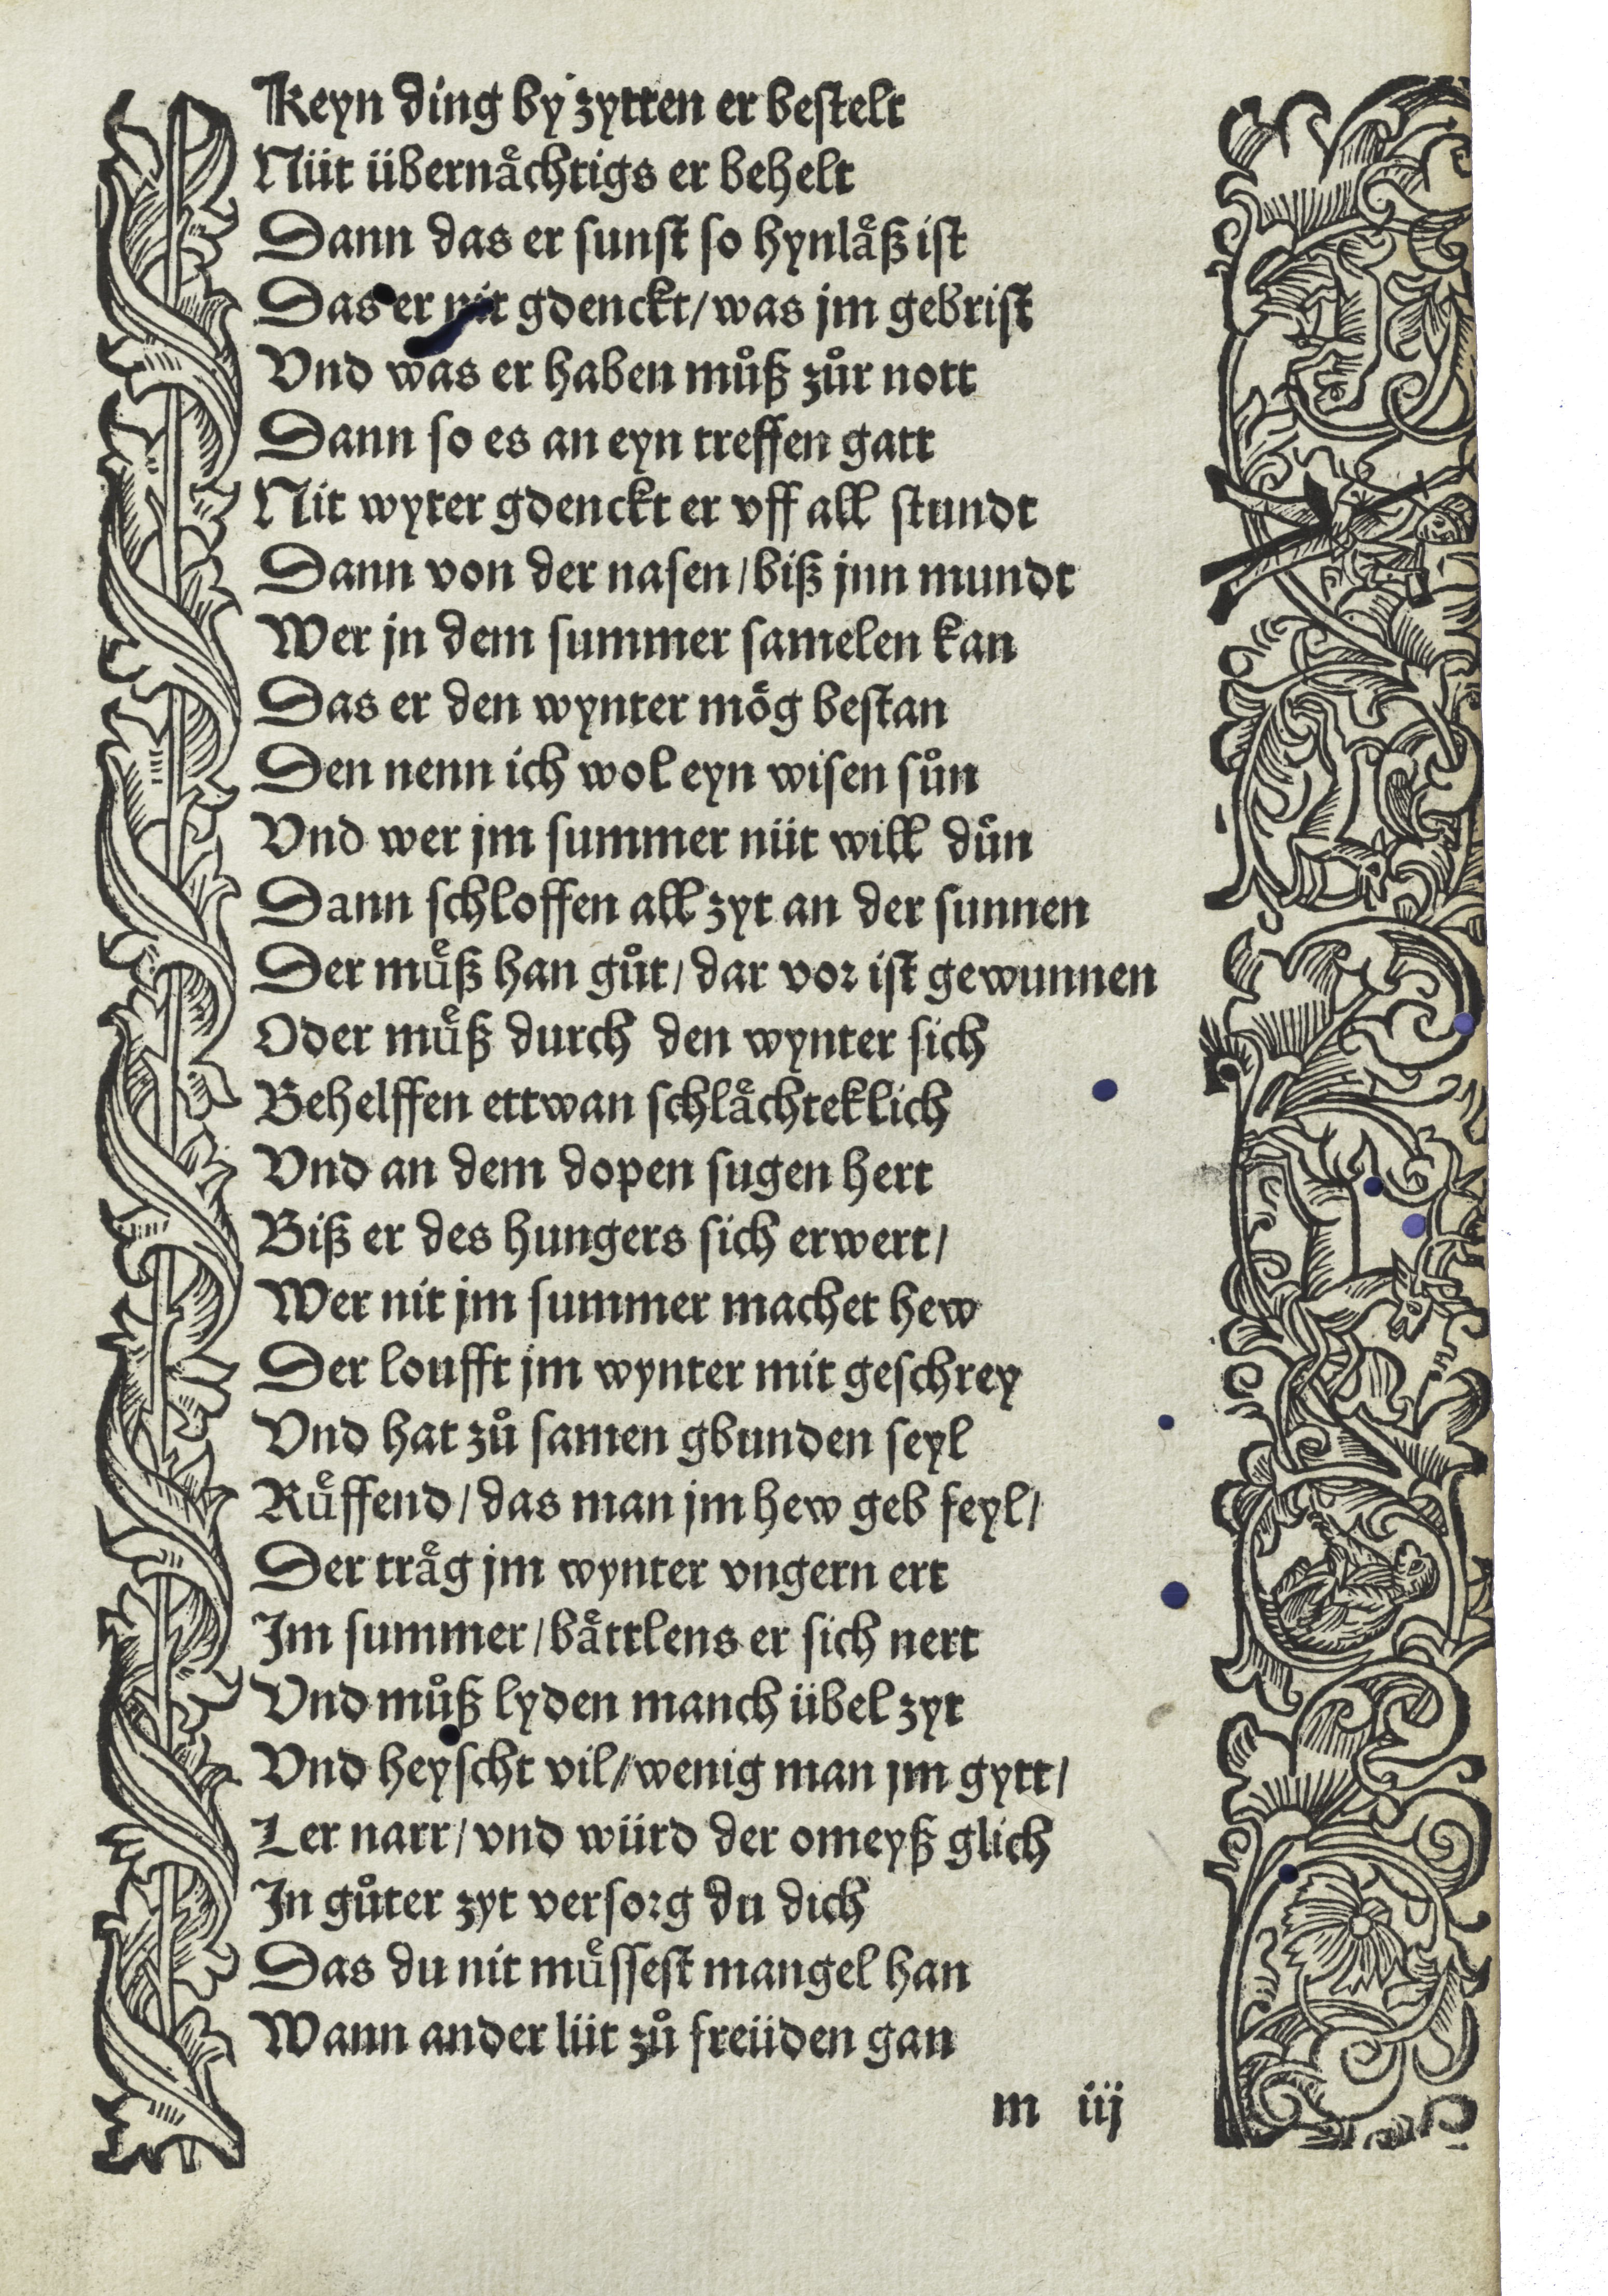 Keyn ding by zytten er bestelt
Nüt übernaͤchtigs er behelt
Dann das er sunst so hynlaͤß ist
Das er nit gdenckt/was jm gebrist
Vnd was er haben muͦß zuͦr nott
Dann so es an eyn treffen gatt
Nit wyter gdenckt er vff all stundt
Dann von der nasen/biß jnn mundt
Wer jn dem summer samelen kan
Das er den wynter moͤg bestan
Den nenn ich wol eyn wisen suͦn
Vnd wer jm summer nüt will duͦn
Dann schloffen all zyt an der sunnen
Der muͤß han guͦt/dar vor ist gewunnen
Oder muͤß durch den wynter sich
Behelffen ettwan schlaͤchteklich
Vnd an dem dopen sugen hert
Biß er des hungers sich erwert/
Wer nit jm summer machet hew
Der loufft jm wynter mit geschrey
Vnd hat zuͦ samen gbunden seyl
Ruͤffend/das man jm hew geb feyl/
Der traͤg jm wynter vngern ert
Im summer/baͤttlens er sich nert
Vnd muͦß lyden manch übel zyt
Vnd heyscht vil//wenig man jm gytt/
Ler narr/vnd würd der omeyß glich
In guͦter zyt versorg du dich
Das du nit muͤssest mangel han
Wann ander lüt zuͦ freüden gan
m iij